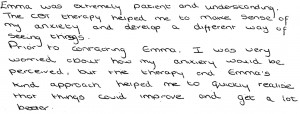 Emma was extremely patient and understanding.
The CBT therapy helped me to make sense of
my anxiety and develop a different way of
seeing things.
Prior to contacting Emma, I was very
worried about how my anxiety would be
perceived, but the therapy and Emma's
kind approach helped me to quickly realise
that things could improve and get a lot
better.